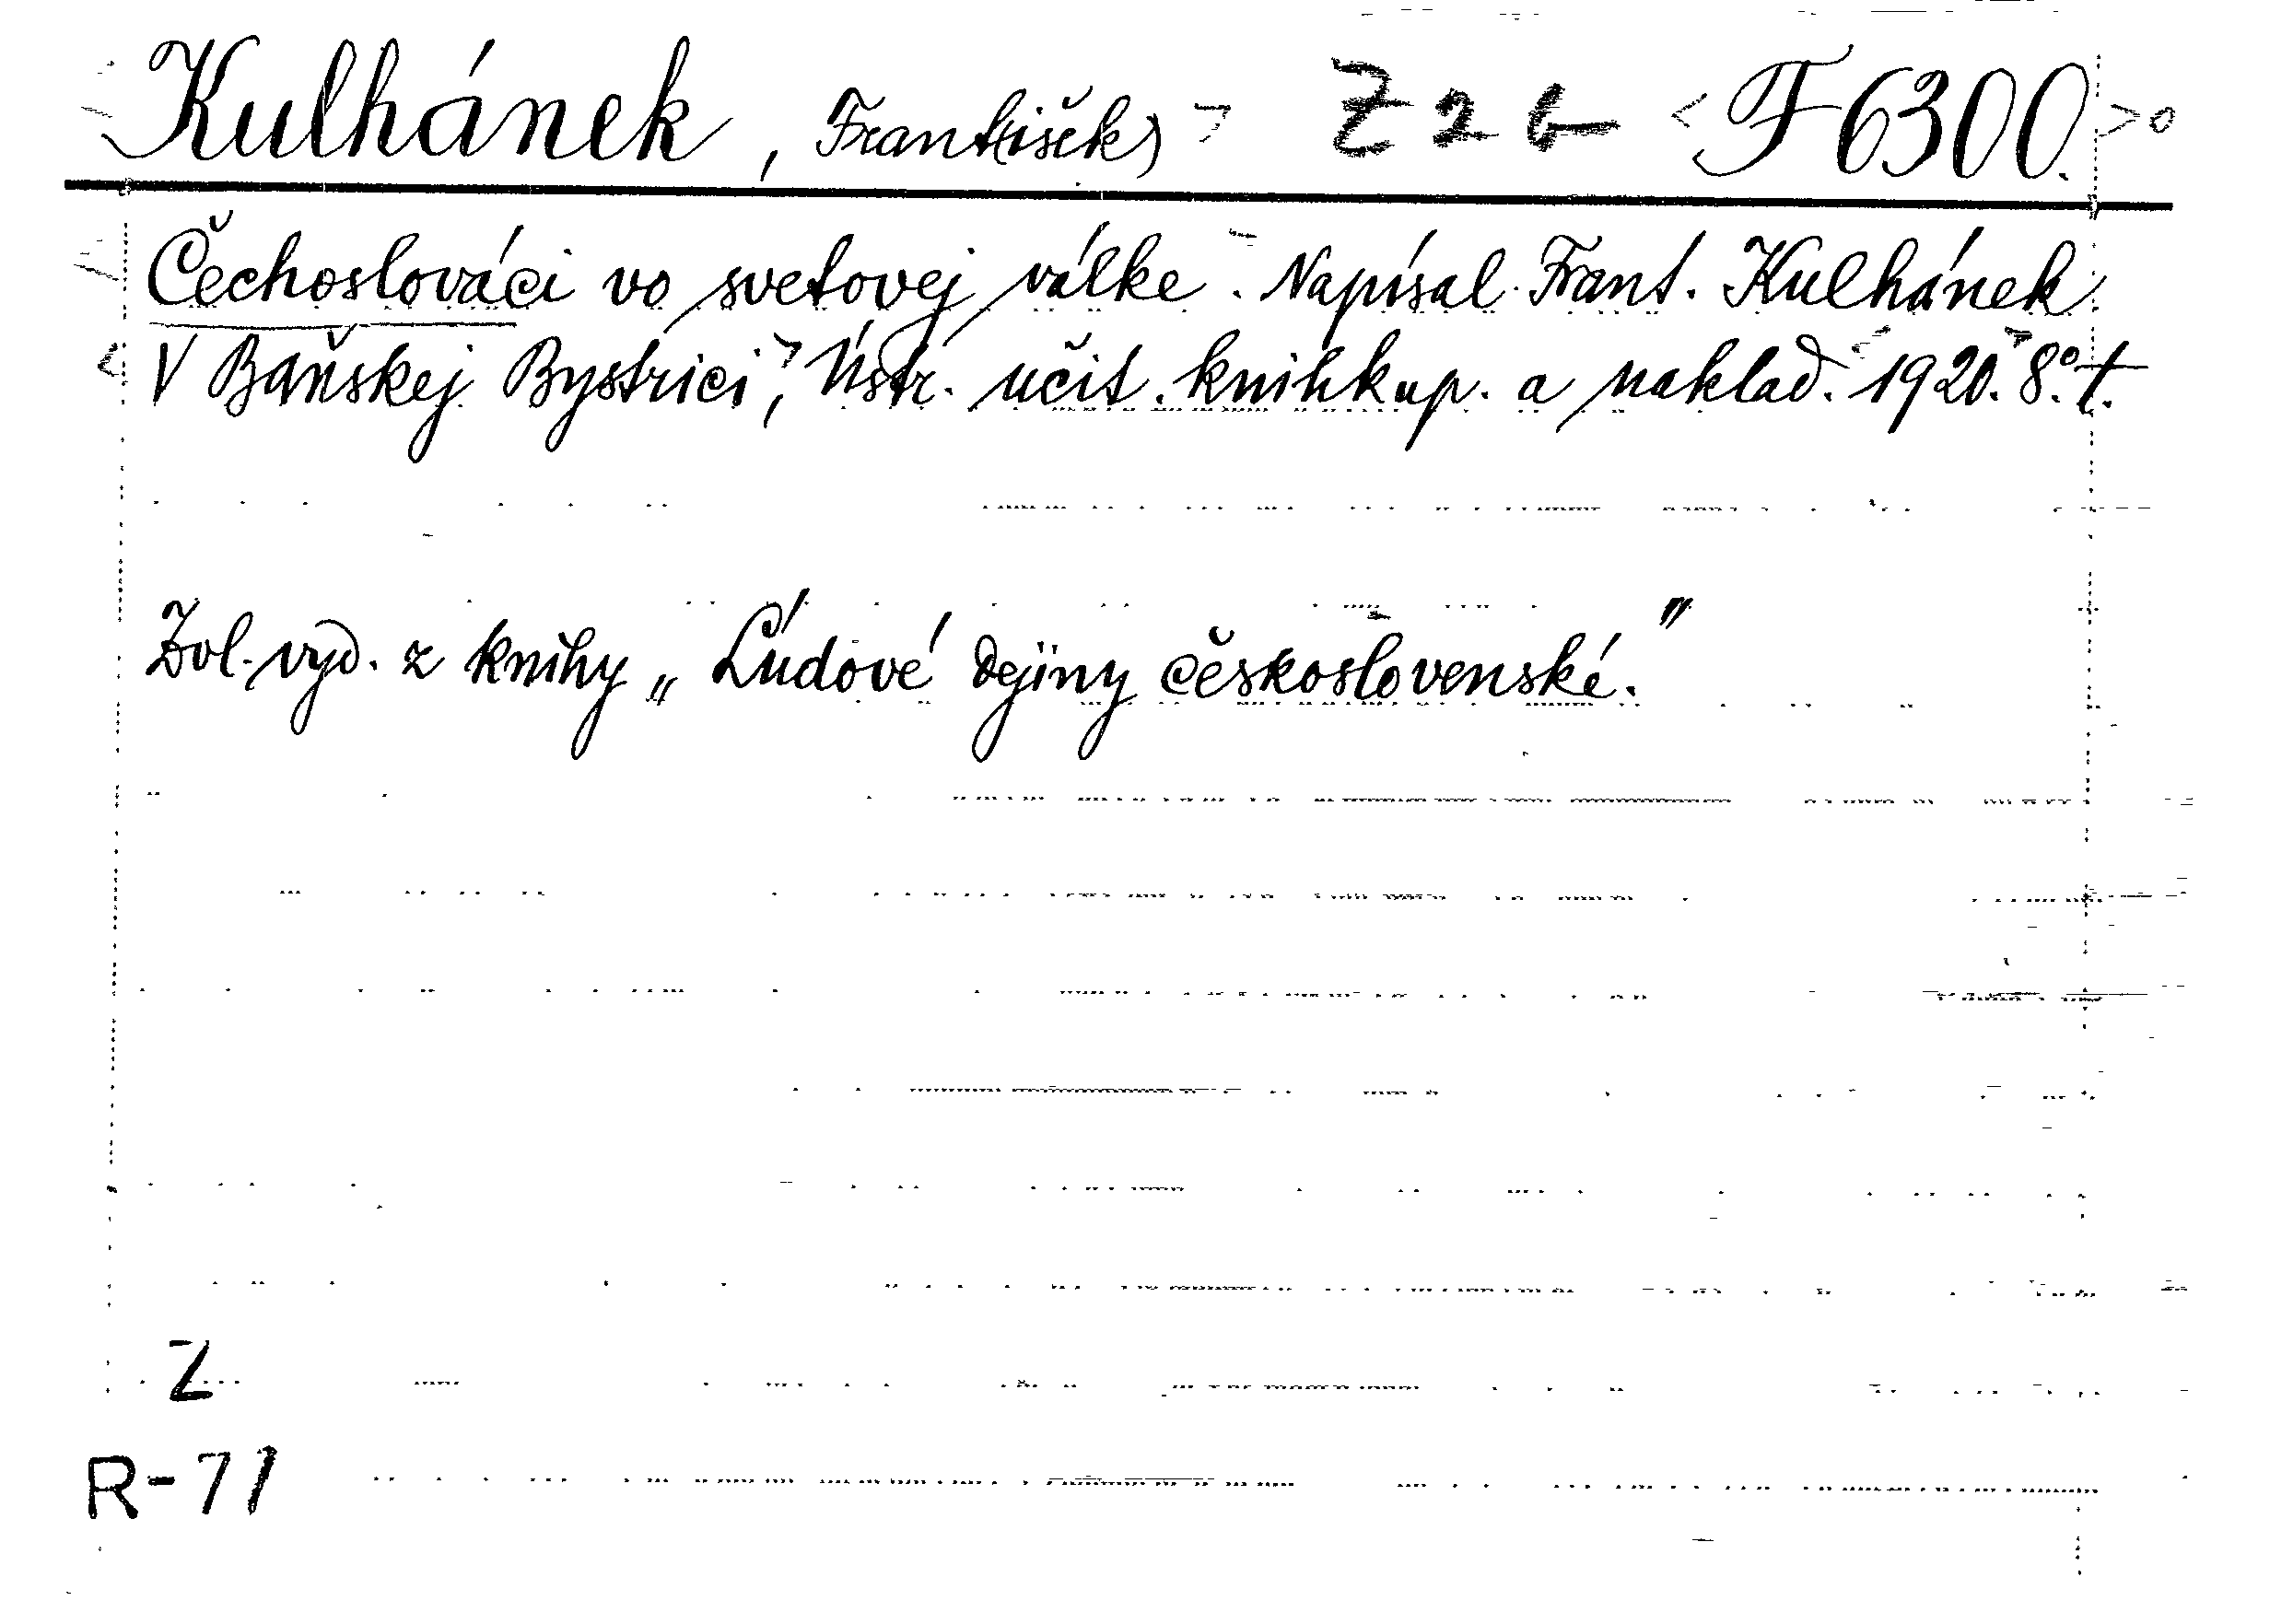 Kulhánek, Frant(išek) Z 26 F 6300.
Čechoslováci vo svetovej válke. Napísal Frant. Kulhánek
V Baňskej Bystrici, Ústr. učit. knihkup. a naklad. 1920. 8°. t.
Zvl. vyd. z knihy „Ľudové dejiny československé."
Z
R-71